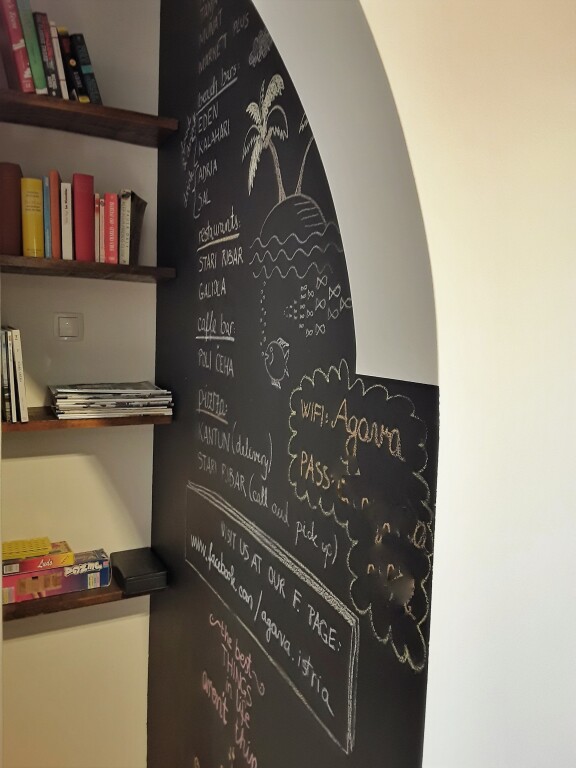 PLUS
beach bars:
EDEN
KALAHARI
ADRIA
SAL
restaurants:
STARI RIBAR
GALIOLA
caffe bar:
POLI ĆEHA
pizzza:
KANTUN (delivery)
STARI RIBAR (call and pick up)
WIFI: Agava
PASS:
VISIT US AT OUR F. PAGE:
www.facebook.com/agava.istria
the best
THINGS
in life
arent
Ludo